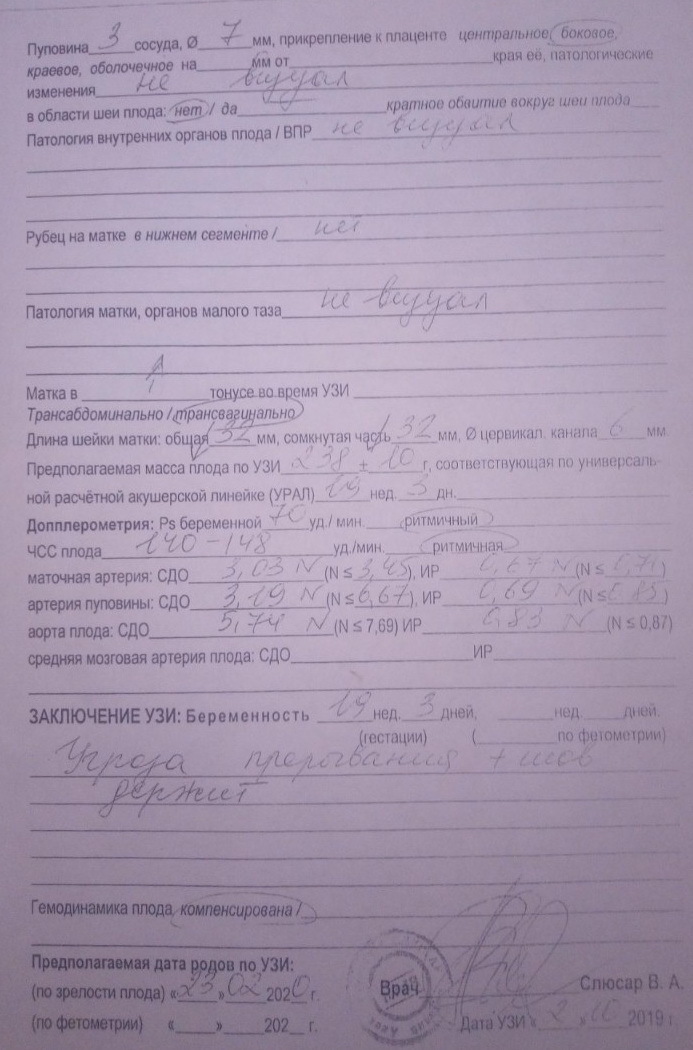 Пуповина 3 сосуда, Ø 7 мм, прикрепление к плаценте центральное, боковое,
краевое, оболочечное на мм от края её, патологические
изменения не визуал
в области шеи плода: нет / да кратное обвитие вокруг шеи плода
Патология внутренних органов плода / ВПР не визуал
Рубец на матке в нижнем сегменте / нет
Патология матки, органов малого таза не визуал
Матка в тонусе во время УЗИ
Трансабдоминально / трансвагинально
Длина шейки матки: общая 32 мм, сомкнутая часть 32 мм, Ø цервикал. канала 6 мм
Предполагаемая масса плода по УЗИ 238 ± 10 г, соответствующая по универсаль-
ной расчётной акушерской линейке (УРАЛ) 19 нед. 3 дн.
Допплерометрия: Ps беременной 70 уд./ мин. ритмичный
ЧСС плода 140-148 уд./мин. ритмичная
маточная артерия: СДО 3,03 N (N ≤ 3,45), ИР 0,67 N (N ≤ 0,71)
артерия пуповины: СДО 3,19 N (N ≤ 6,67), ИР 0,69 N (N ≤ 0,85)
аорта плода: СДО 5,74 N (N ≤ 7,69) ИР 0,83 N (N ≤ 0,87)
средняя мозговая артерия плода: СДО ИР
ЗАКЛЮЧЕНИЕ УЗИ: Беременность 19 нед. 3 дней, нед. дней.
(гестации) ( по фетометрии)
Угроза прерывания + шов
держит
Гемодинамика плода компенсирована /
Предполагаемая дата родов по УЗИ:
(по зрелости плода) «23» 02 2020 г.
(по фетометрии) « » 202 г.
Врач Слюсар В. А.
Дата УЗИ « 2 » 10 2019 г.